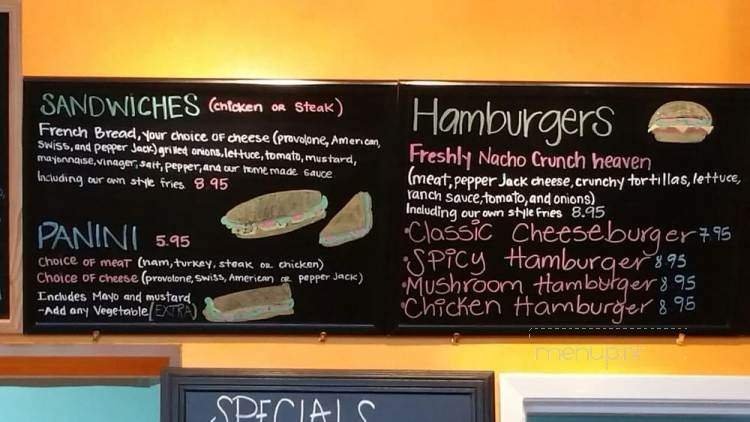 SANDWICHES (chicken OR Steak)
French Bread, your choice of cheese (provolone, American,
Swiss, and pepper Jack) grilled onions, lettuce, tomato, mustard,
mayonnaise, vinager, salt, pepper, and our home made sauce
Including our own style fries 8.95
PANINI 5.95
Choice of meat (ham, turkey, steak or chicken)
Choice of cheese (provolone, swiss, American or pepper Jack)
Includes Mayo and mustard
-Add any Vegetable (EXTRA)
Hamburgers
Freshly Nacho Crunch heaven
(meat, pepper Jack cheese, crunchy tortillas, lettuce,
ranch sauce, tomato, and onions)
Including our own style fries 8.95
•Classic Cheeseburger 7.95
•Spicy Hamburger 8.95
•Mushroom Hamburger 8.95
•Chicken Hamburger 8.95
SPECIALS